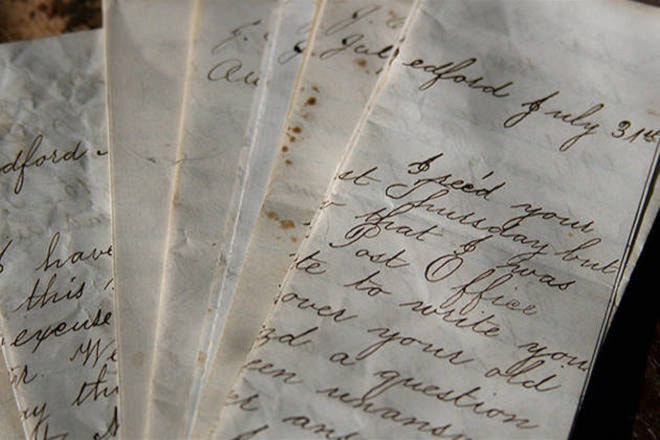 dford
I have
this
excuse
r. We
ay th
Au
J. Jul
edford July 31st
I rec'd your
st Thursday but
that I was
Post Office
te to write you
over your old
nd a question
een unansw
er an